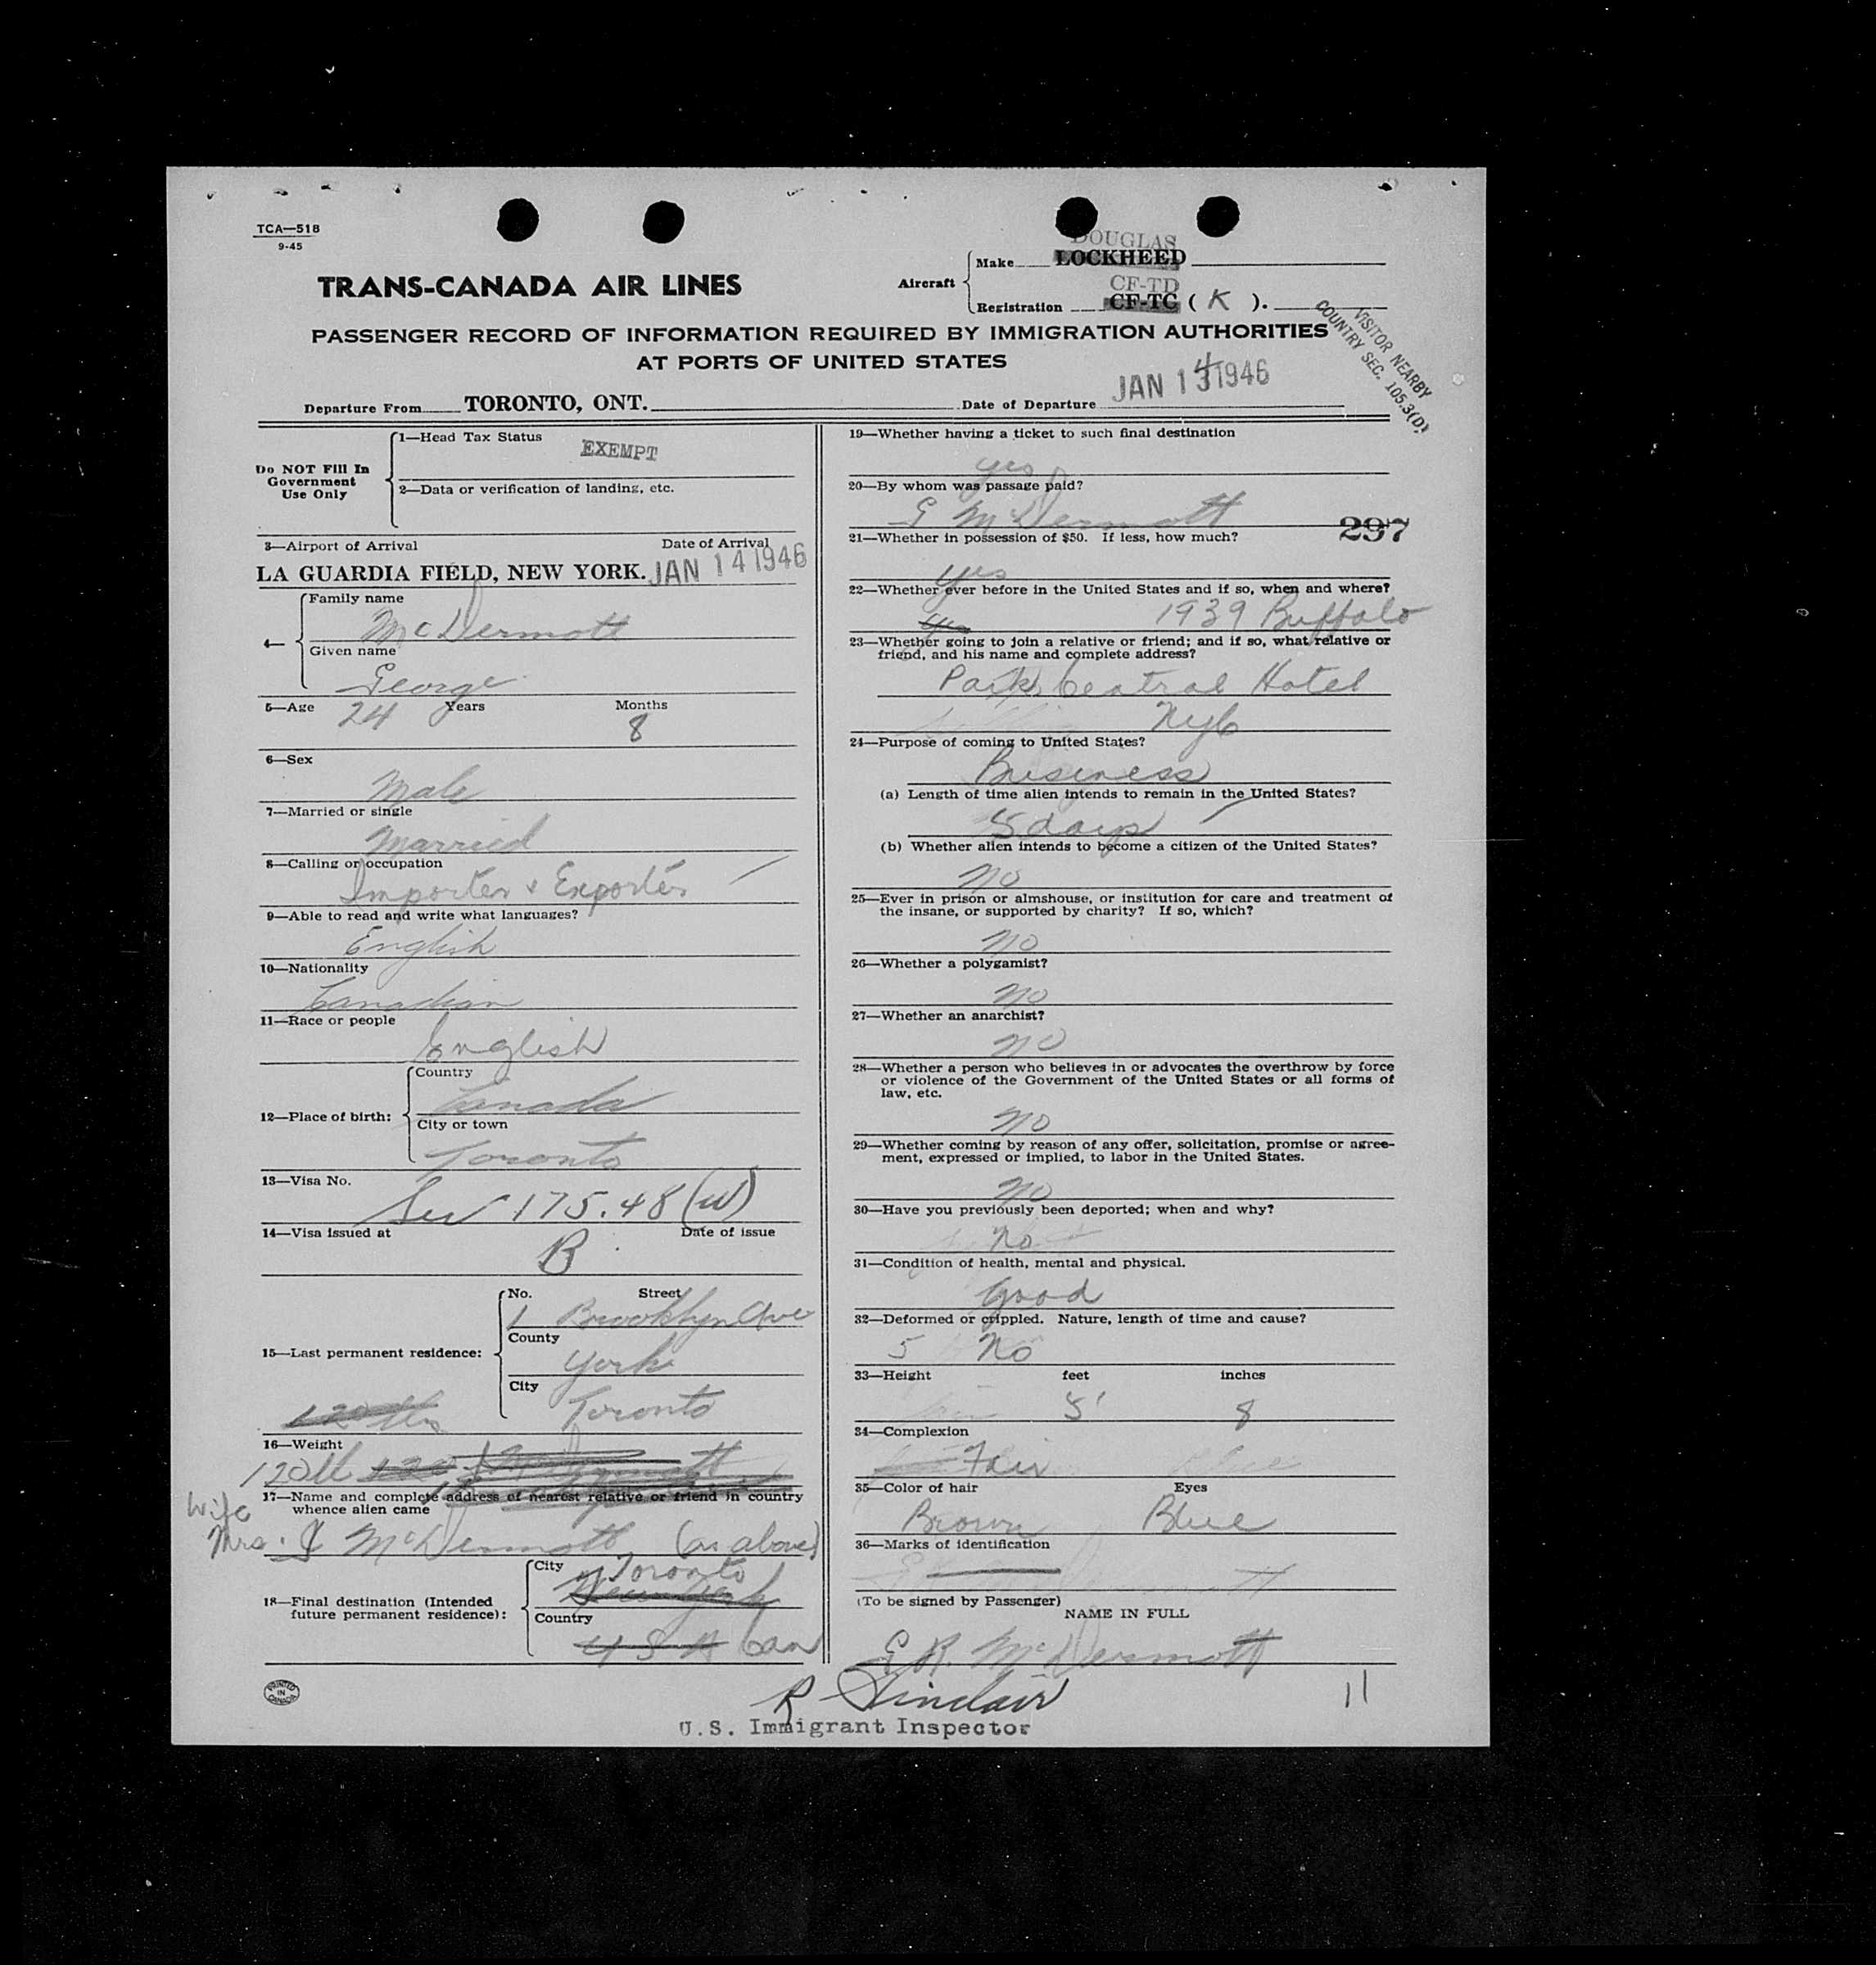 TCA—518
9-45
TRANS-CANADA AIR LINES
Aircraft
Make
DOUGLAS
LOCKHEED
Registration
CF-TD
CF-TC ( K ).
VISITOR NEARBY
COUNTRY SEC. 105.3(D)
PASSENGER RECORD OF INFORMATION REQUIRED BY IMMIGRATION AUTHORITIES
AT PORTS OF UNITED STATES
Departure From TORONTO, ONT.
Date of Departure JAN 14 1946
Do NOT Fill In
Government
Use Only
1—Head Tax Status
EXEMPT
2—Data or verification of landing, etc.
3—Airport of Arrival Date of Arrival
LA GUARDIA FIELD, NEW YORK. JAN 14 1946
4—
Family name
McDermott
Given name
George
5—Age 24 Years Months
8
6—Sex
Male
7—Married or single
Married
8—Calling or occupation
Importer & Exporter
9—Able to read and write what languages?
English
10—Nationality
Canadian
11—Race or people
English
12—Place of birth:
Country
Canada
City or town
Toronto
13—Visa No.
Sec 175.48 (w)
14—Visa issued at Date of issue
B
15—Last permanent residence:
No. Street
1 Brooklyn Ave
County
York
City
Toronto
120 lbs
16—Weight
120 lb
17—Name and complete address of nearest relative or friend in country
whence alien came
Wife
Mrs. McDermott (as above)
18—Final destination (Intended
future permanent residence):
City
Toronto
New York
Country
U S A Can
PRINTED
IN
CANADA
19—Whether having a ticket to such final destination
yes
20—By whom was passage paid?
G McDermott
297
21—Whether in possession of $50. If less, how much?
yes
22—Whether ever before in the United States and if so, when and where?
yes 1939 Buffalo
23—Whether going to join a relative or friend; and if so, what relative or
friend, and his name and complete address?
Park Central Hotel
NYC
24—Purpose of coming to United States?
Business
(a) Length of time alien intends to remain in the United States?
5 days
(b) Whether alien intends to become a citizen of the United States?
No
25—Ever in prison or almshouse, or institution for care and treatment of
the insane, or supported by charity? If so, which?
No
26—Whether a polygamist?
No
27—Whether an anarchist?
No
28—Whether a person who believes in or advocates the overthrow by force
or violence of the Government of the United States or all forms of
law, etc.
No
29—Whether coming by reason of any offer, solicitation, promise or agree-
ment, expressed or implied, to labor in the United States.
No
30—Have you previously been deported; when and why?
No
31—Condition of health, mental and physical.
Good
32—Deformed or crippled. Nature, length of time and cause?
5 No
33—Height feet inches
5' 8
34—Complexion
Fair
35—Color of hair Eyes
Brown Blue
36—Marks of identification
(To be signed by Passenger)
NAME IN FULL
G R. McDermott
R Sinclair
11
U.S. Immigrant Inspector